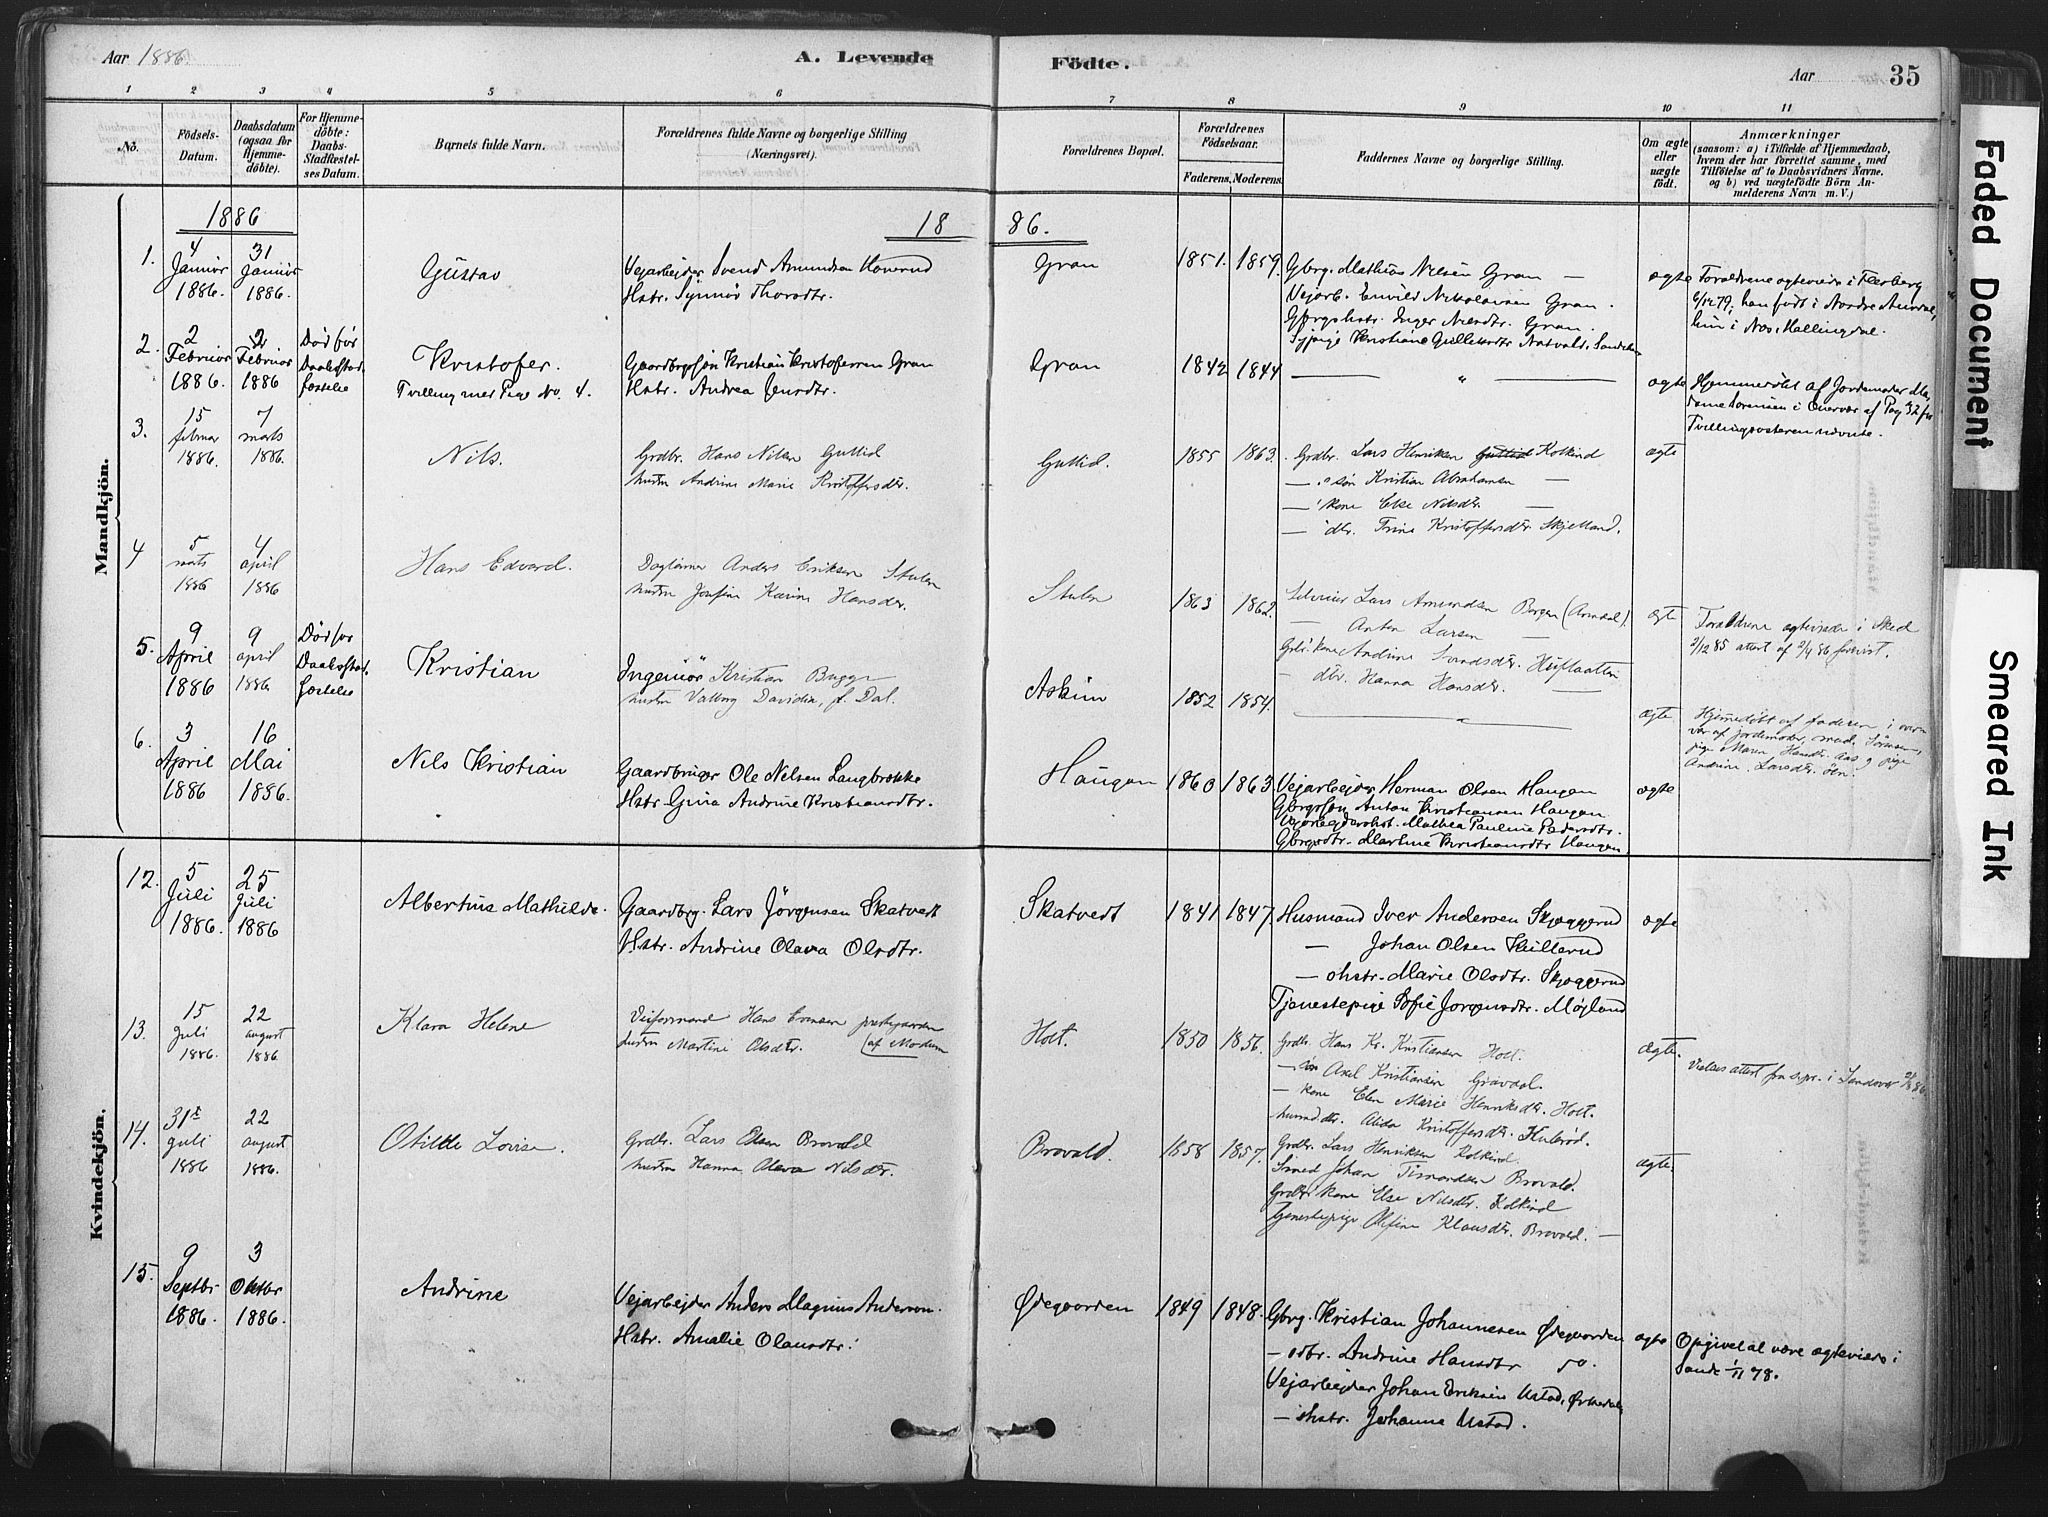 Aar 1886.
A. Levende
Födte.
Aar
35
1 2 3 4 5 6
7 8 9 10 11
No.
Födsels-
Datum.
Daabsdatum
(ogsaa for
Hjemme-
döbte).
For Hjemme-
döbte:
Daabs-
Stadfæstel-
ses Datum.
Barnets fulde Navn.
Forældrenes fulde Navne og borgerlige Stilling
(Næringsvei).
Forældrenes Bopæl.
Forældrenes
Födselsaar.
Faderens. Moderens.
Faddernes Navne og borgerlige Stilling.
Om ægte
eller
uægte
födt.
Anmærkninger
(saasom: a) i Tilfælde af Hjemmedaab,
hvem der har forrettet samme, med
Tilföielse af to Daabsvidners Navne.
og b) ved uægtefödte Börn An-
melderens Navn m. V.)
Mandkjön.
1886
18 86.
1.
4 Januar 1886.
31 Januar 1886.
Gustav
Vejarbejder Svend Amundsen
Hstr. Synnøv Thorsdtr.
Gran
1851. 1859.
Gbrg. Mathias Nilsen Gran —
Vejarb. Nikolaisen Gran.
Gbrgshstr. Inger Gran.
Kristiane
ægte
Forældrene ægteviede i Flesberg
6/12 79; han født i Nordre Aurdal,
hun i Nes, Hallingdal.
2.
2 Februar 1886.
2 Februar 1886
Død før
Daabsstad-
fæstelse
Kristofer.
Tvilling med Pige No. 4.
Gaardbrgsøn Kristian Kristoffersen Gran
Hstr. Andrea Jensdtr.
Gran
1842 1844
— " —
ægte
Hjemmedøbt af Jordemoder Ma-
dame Sørensen i Overvær af
Tvillingsøsteren
3.
15 februar 1886.
7 marts 1886.
Nils.
Grdbr. Hans Nilsen Gullid
hustru Andrine Marie Kristoffersdtr.
Gullid.
1855 1863.
Grdbr. Lars Henriksen Kolkind
— søn Kristian Abrahamsen —
— kone Else Nilsdtr. —
— dtr. Trine Kristoffersdtr. Skjelland.
ægte
4
5 mats 1886
4 april 1886
Hans Edvard.
Daglønner Anders Eriksen Stulen
hustru Josefine Karine Hansdtr.
Stulen
1863 1862.
Lars Amundsen Bergen
— Anton Larsen —
kone Andrine
— dtr. Hanna Hansdtr. —
ægte
Forældrene ægteviede i
2/12 85 attest af 2/4 86
5.
9 April 1886
9 april 1886
Død før
Daabsstad-
fæstelse
Kristian
Ingeniør Kristian Bugge
hustru Valborg Davidia, f. Dal.
Askim
1852 1854.
— " —
ægte
Hjemmedøbt af faderen i over-
vær af jordemoder, mad. Sörensen,
pige Maren Hansdtr. Aas og pige
Andrine Larsdtr.
6.
3 April 1886
16 Mai 1886.
Nils Kristian
Gaardbruger Ole Nelsen Langbrokke
Hstr Gina Andrine Kristiansdtr.
Haugen
1860 1863
Vejarbejder Herman Olsen Haugen
Gbrgsøn Anton Kristiansen Haugen
Mathea Pauline Pedersdtr.
Gbrgsdtr. Martine Kristiansdtr Haugen.
ægte
Kvindekjön.
12.
5 Juli 1886.
25 Juli 1886
Albertine Mathilde.
Gaardbrg. Lars Jörgensen Skatvedt
Hstr. Andrine Olava Olsdtr.
Skatvedt
1841 1847.
Husmand Iver Andersen Skjeggerud
— Johan Olsen Killerud
— hstr. Marie Olsdtr. Skjeggerud
Tjenestepige Sofie Jorgensdtr. Møjlund
ægte
13.
15 juli 1886.
22 august 1886
Klara Helene
Hans Evensen
hustru Martine Olsdtr. (af Modum
Holt.
1850 1856.
Grdbr. Hans Kr. Kristiansen Holt.
— søn Axel Kristiansen Gravdal.
— kone Elen Marie Henriksdtr. Holt.
Alida Kristoffersdtr.
ægte.
Vielses attest fra
14.
31te juli 1886
22 august 1886.
Otilde Lovise.
Grdbr. Lars Olsen Brovold
hustru Hanna Olava Nilsdtr.
Brovold.
1858 1857.
Grdbr. Lars Henriksen Kolkind
Johan Brovold.
Grdbr. kone Else Nilsdtr. Kolkind
Tjenestepige Olefine Klausdtr. Brovold. —
ægte
15.
9 Septbr 1886.
3 Oktbr 1886.
Andrine
Vejarbejder Anders Magnus Anderson.
Hstr. Amalie Olausdtr.
Ødegaarden
1849 1848.
Gbrg. Kristian Johannesen Ødegaarden
— dtr. Andrine Hansdtr do.
Vejarbejder Johan Eriksen Ustad, Ørkedal,
— hstr. Johanne Ustad.
ægte
Opgivet at være ægteviede i
Sande 1/11 78.
Faded Document
Smeared Ink